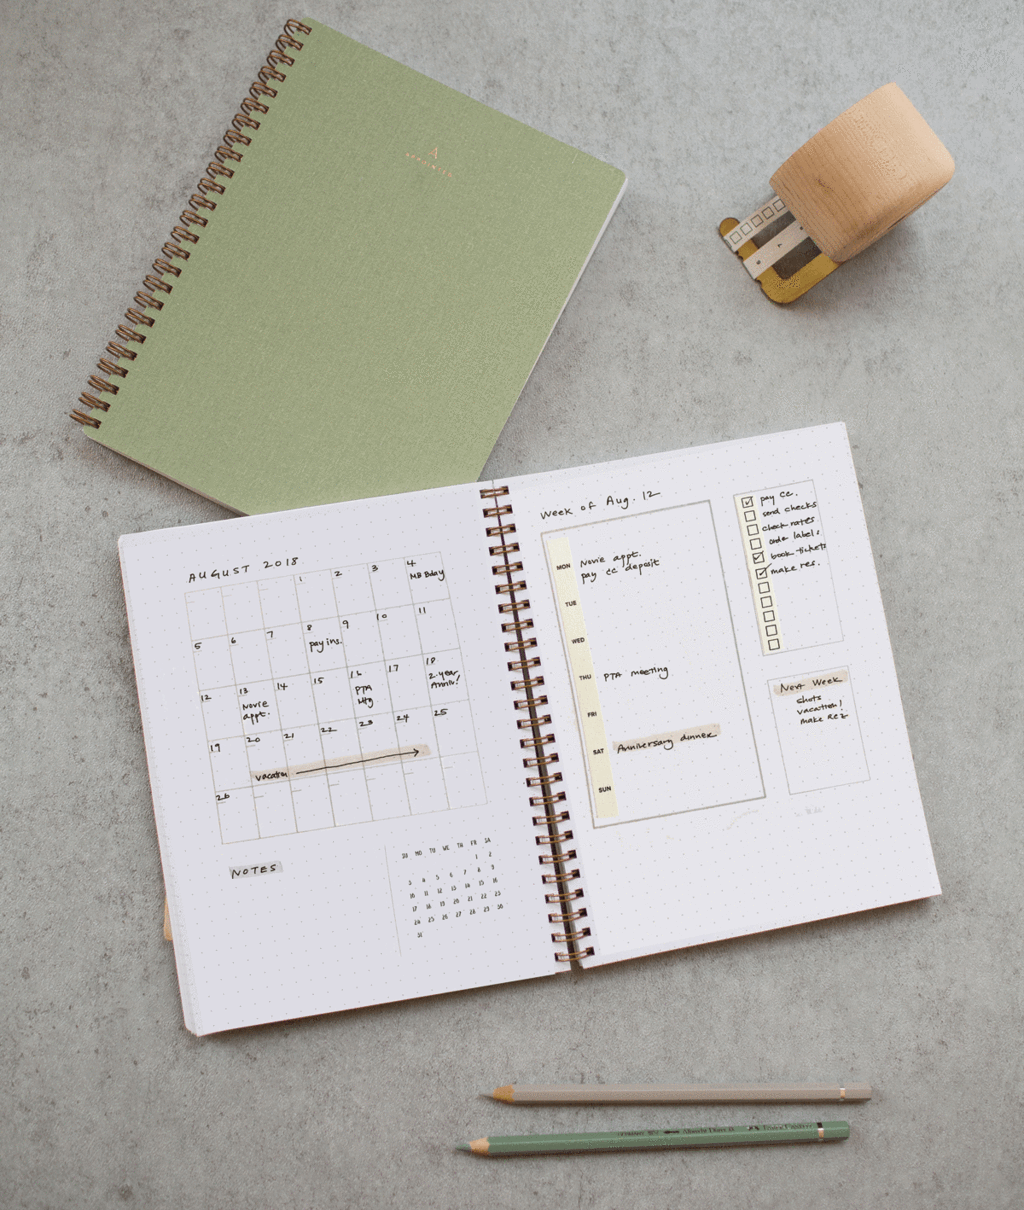 A
AUGUST 2018
1 2 3 4
MB Bday
5 6 7 8 9 10 11
pay ins.
12 13 14 15 16 17 18
Novie appt.
PTA Mtg
2-year Anniv!
19 20 21 22 23 24 25
vacation
26
NOTES
SU MO TU WE TH FR SA
1 2
3 4 5 6 7 8 9
10 11 12 13 14 15 16
17 18 19 20 21 22 23
24 25 26 27 28 29 30
31
Week of Aug. 12
MON Novie appt.
pay cc deposit
TUE
WED
THU PTA meeting
FRI
SAT Anniversary dinner
SUN
pay cc.
send checks
check rates
order labels
book tickets
make res.
Next Week
shots
vacation!
make rez